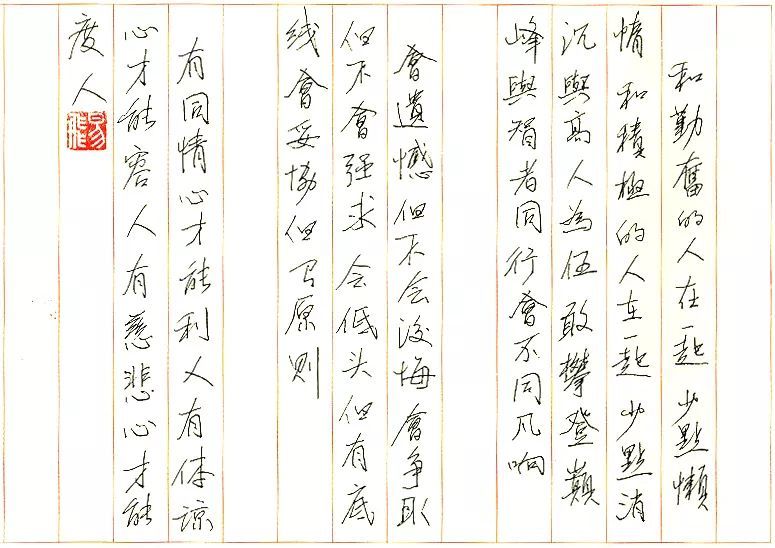 和勤奮的人在一起少點懶
惰和積極的人在一起少點消
沉與高人為伍敢攀登巔
峰與智者同行會不同凡响
會遺憾但不会後悔會爭取
但不會强求会低头但有底
线會妥協但有原则
有同情心才能利人有体谅
心才能容人有慈悲心才能
度人